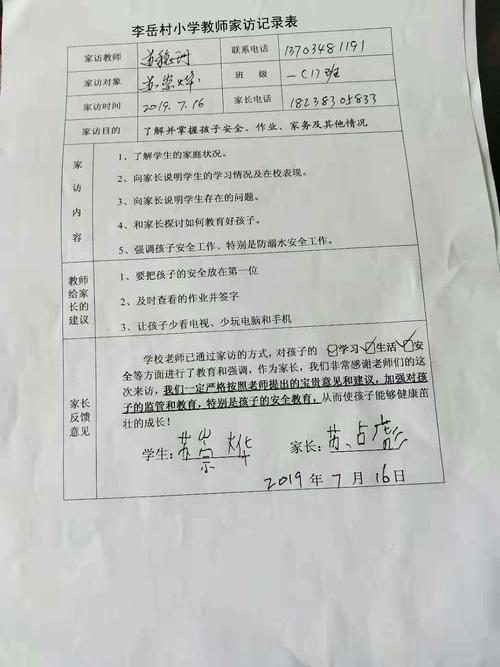 李岳村小学教师家访记录表
家访教师 苏稳 联系电话 13703481191
家访对象 苏崇烨 班 级 一(1)班
家访时间 2019.7.16 家长电话 18238305833
家访目的 了解并掌握孩子安全、作业、家务及其他情况
家访内容
1、了解学生的家庭状况。
2、向家长说明学生的学习情况及在校表现。
3、向家长说明学生存在的问题。
4、和家长探讨如何教育好孩子。
5、强调孩子安全工作、特别是防溺水安全工作。
教师给家长的建议
1、要把孩子的安全放在第一位
2、及时查看的作业并签字
3、让孩子少看电视、少玩电脑和手机
家长反馈意见
学校老师已通过家访的方式，对孩子的 ☑学习☑生活☑安
全等方面进行了教育和强调，作为家长，我们非常感谢老师们的这
次来访，我们一定严格按照老师提出的宝贵意见和建议，加强对孩
子的监管和教育，特别是孩子的安全教育，从而使孩子能够健康茁
壮的成长！
学生：苏崇烨 家长：苏占彪
2019 年 7 月 16 日